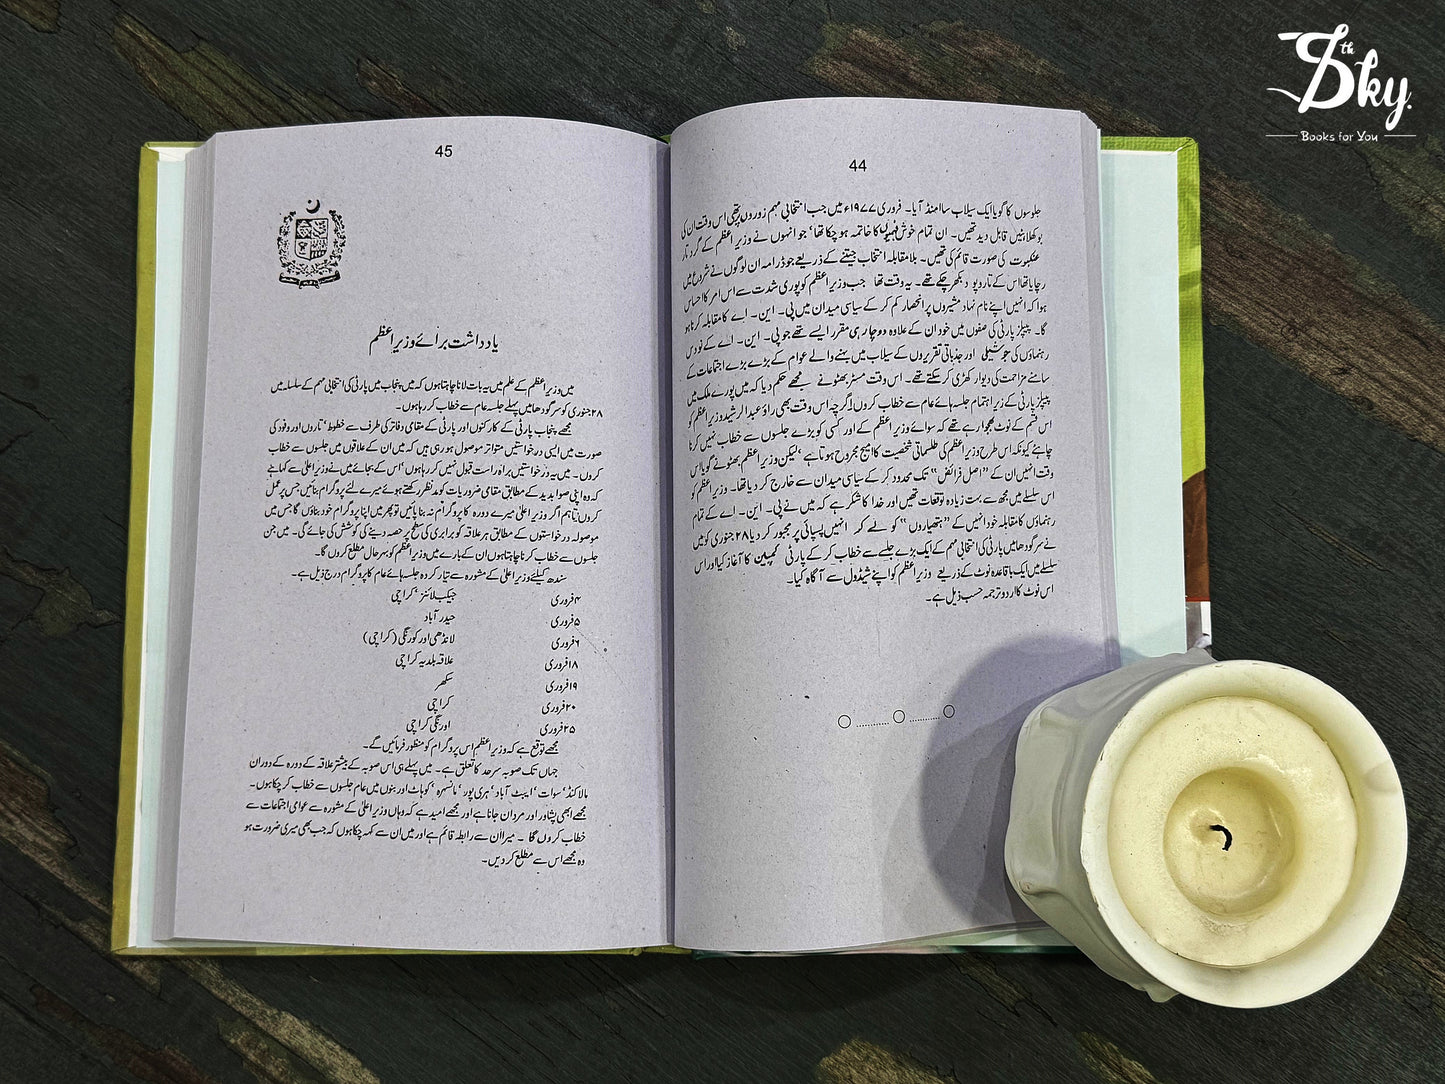 44
جلوسوں کا گویا ایک سیلاب سا امنڈ آیا۔ فروری ۱۹۷۷ء میں جب انتخابی مہم زوروں پر تھی اس وقت ان کی
بوکھلاہٹیں قابل دید تھیں۔ ان تمام خوش فہمیوں کا خاتمہ ہو چکا تھا‘ جو انہوں نے وزیراعظم کے گرد تار
عنکبوت کی صورت قائم کی تھیں۔ بلا مقابلہ انتخاب جیتنے کے ذریعے جو ڈرامہ ان لوگوں نے شروع میں
رچایا تھا اس کے تار و پود بکھر چکے تھے۔ یہ وقت تھا جب وزیراعظم کو پوری شدت سے اس امر کا احساس
ہوا کہ انہیں اپنے نام نہاد مشیروں پر انحصار کم کر کے سیاسی میدان میں پی۔ این۔ اے کا مقابلہ کرنا ہو
گا۔ پیپلز پارٹی کی صفوں میں خود ان کے علاوہ دو چار ہی مقرر ایسے تھے جو پی۔ این۔ اے کے نو دس
رہنماؤں کی جوشیلی اور جذباتی تقریروں کے سیلاب میں بہنے والے عوام کے بڑے بڑے اجتماعات کے
سامنے مزاحمت کی دیوار کھڑی کر سکتے تھے۔ اس وقت مسٹر بھٹو نے مجھے حکم دیا کہ میں پورے ملک میں
پیپلز پارٹی کے زیر اہتمام جلسہ ہائے عام سے خطاب کروں اگرچہ اس وقت بھی راؤ عبدالرشید وزیراعظم کو
اس قسم کے نوٹ بھجوا رہے تھے کہ سوائے وزیراعظم کے اور کسی کو بڑے جلسوں سے خطاب نہیں کرنا
چاہئے کیونکہ اس طرح وزیراعظم کی طلسماتی شخصیت کا امیج مجروح ہوتا ہے‘ لیکن وزیراعظم بھٹو نے گویا اس
وقت انہیں ان کے ”اصل فرائض“ تک محدود کر کے سیاسی میدان سے خارج کر دیا تھا۔ وزیراعظم کو
اس سلسلے میں مجھ سے بہت زیادہ توقعات تھیں اور خدا کا شکر ہے کہ میں نے پی۔ این۔ اے کے تمام
رہنماؤں کا مقابلہ خود انہیں کے ”ہتھیاروں“ کو لے کر انہیں پسپائی پر مجبور کر دیا ۲۸ جنوری کو میں
نے سرگودھا میں پارٹی کی انتخابی مہم کے ایک بڑے جلسے سے خطاب کر کے پارٹی کمپین کا آغاز کیا اور اس
سلسلے میں ایک باقاعدہ نوٹ کے ذریعے وزیراعظم کو اپنے شیڈول سے آگاہ کیا۔
اس نوٹ کا اردو ترجمہ حسب ذیل ہے۔
45
یادداشت برائے وزیراعظم
میں وزیراعظم کے علم میں یہ بات لانا چاہتا ہوں کہ میں پنجاب میں پارٹی کی انتخابی مہم کے سلسلہ میں
۲۸ جنوری کو سرگودھا میں پہلے جلسہ عام سے خطاب کر رہا ہوں۔
مجھے پنجاب پارٹی کے کارکنوں اور پارٹی کے مقامی دفاتر کی طرف سے خطوط‘ تاروں اور وفود کی
صورت میں ایسی درخواستیں متواتر موصول ہو رہی ہیں کہ میں ان کے علاقوں میں جلسوں سے خطاب
کروں۔ میں یہ درخواستیں براہ راست قبول نہیں کر رہا ہوں‘ اس کے بجائے میں نے وزیراعلیٰ سے کہا ہے
کہ وہ اپنی صوابدید کے مطابق مقامی ضروریات کو مدنظر رکھتے ہوئے میرے لئے پروگرام بنائیں جس پر عمل
کروں تاہم اگر وزیراعلیٰ میرے دورہ کا پروگرام نہ بنا پائیں تو پھر میں اپنا پروگرام خود بناؤں گا جس میں
موصولہ درخواستوں کے مطابق ہر علاقہ کو برابری کی سطح پر حصہ دینے کی کوشش کی جائے گی۔ میں جن
جلسوں سے خطاب کرنا چاہتا ہوں ان کے بارے میں وزیراعظم کو بہرحال مطلع کروں گا۔
سندھ کیلئے وزیراعلیٰ کے مشورہ سے تیار کردہ جلسہ ہائے عام کا پروگرام درج ذیل ہے۔
۴ فروری جیکب لائنز‘ کراچی
۵ فروری حیدر آباد
۶ فروری لانڈھی اور کورنگی (کراچی)
۱۸ فروری علاقہ بلدیہ کراچی
۱۹ فروری سکھر
۲۰ فروری کراچی
۲۵ فروری اورنگی کراچی
مجھے توقع ہے کہ وزیراعظم اس پروگرام کو منظور فرمائیں گے۔
جہاں تک صوبہ سرحد کا تعلق ہے۔ میں پہلے ہی اس صوبہ کے بیشتر علاقہ کے دورہ کے دوران
مالاکنڈ‘ سوات‘ ایبٹ آباد‘ ہری پور‘ مانسہرہ‘ کوہاٹ اور بنوں میں عام جلسوں سے خطاب کر چکا ہوں۔
مجھے ابھی پشاور اور مردان جانا ہے اور مجھے امید ہے کہ وہاں وزیراعلیٰ کے مشورہ سے عوامی اجتماعات سے
خطاب کروں گا۔ میرا ان سے رابطہ قائم ہے اور میں ان سے کہہ چکا ہوں کہ جب بھی میری ضرورت ہو
وہ مجھے اس سے مطلع کر دیں۔
th Sky.
Books for You